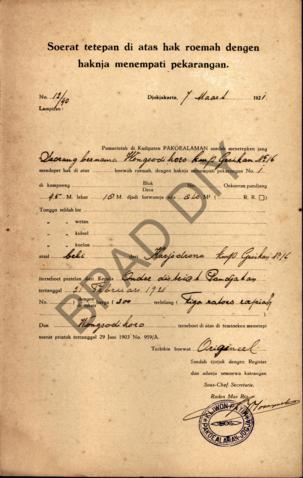 Soerat tetepan di atas hak roemah dengen
haknja menempati pekarangan.
No. 12/90 Djokjakarta, 7 Maart 1921.
Lampiran :
Pamerentah di Kadipaten PAKOEALAMAN soedah menetepken jang
Seorang bernama Wongsodikoro kmp. Gunketan No 16
mendapet hak di atas boewah roemah, dengen haknja menempati pekarangan No. 1
di kampoeng Blok Desa Oekoeran pandjang
M. lebar 18 M. djadi loewasnja ada M² ( R. R. □)
Tangga sebelah lor
„ „ wetan
„ „ kidoel
„ „ koelon
asal beli dari Karjodrono kmp. No 16
terseboet pratelan dari Kepala Onder district Pandjatan
tertanggal 21 Februari 1921
No. harga f 300 terbilang ( Tiga ratoes roepiah
Dan Wongsodikoro terseboet di atas di temtoeken menetepi
soerat pranatan tertanggal 29 Juni 1903 No. 959/A.
Terbikin boewat Origineel
Soedah tjotjok dengen Register
dan adanja semoewa katrangan
Sous-Chef Secretarie,
Raden Mas Rio
KLIWON-PATIH
PAKOEALAMAN-DJOCJA
BPAD DIY